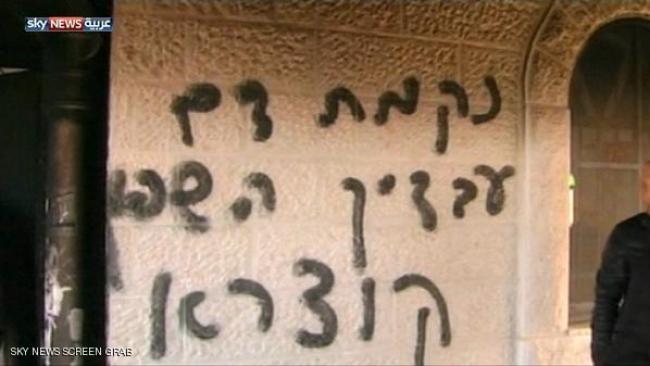 SKY NEWS عربية
נקמת דם
עבדיך השפוך
קוצרא
SKY NEWS SCREEN GRAB